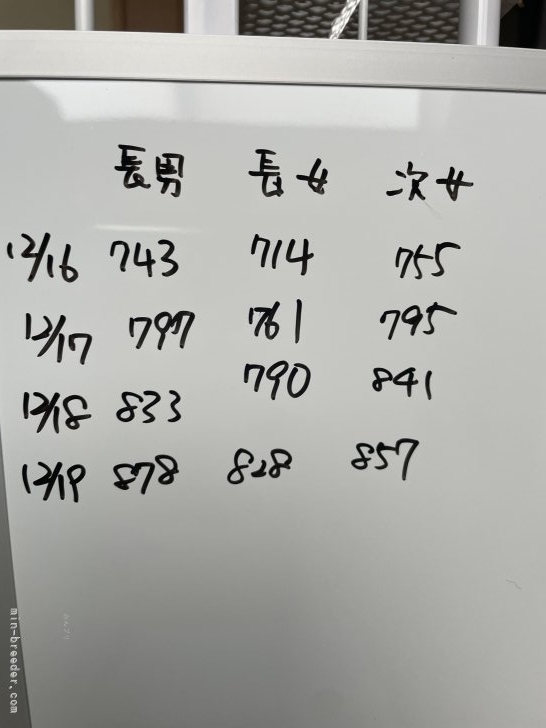 長男 長女 次女
12/16 743 714 755
12/17 797 761 795
12/18 833 790 841
12/19 878 828 857
min-breeder.com